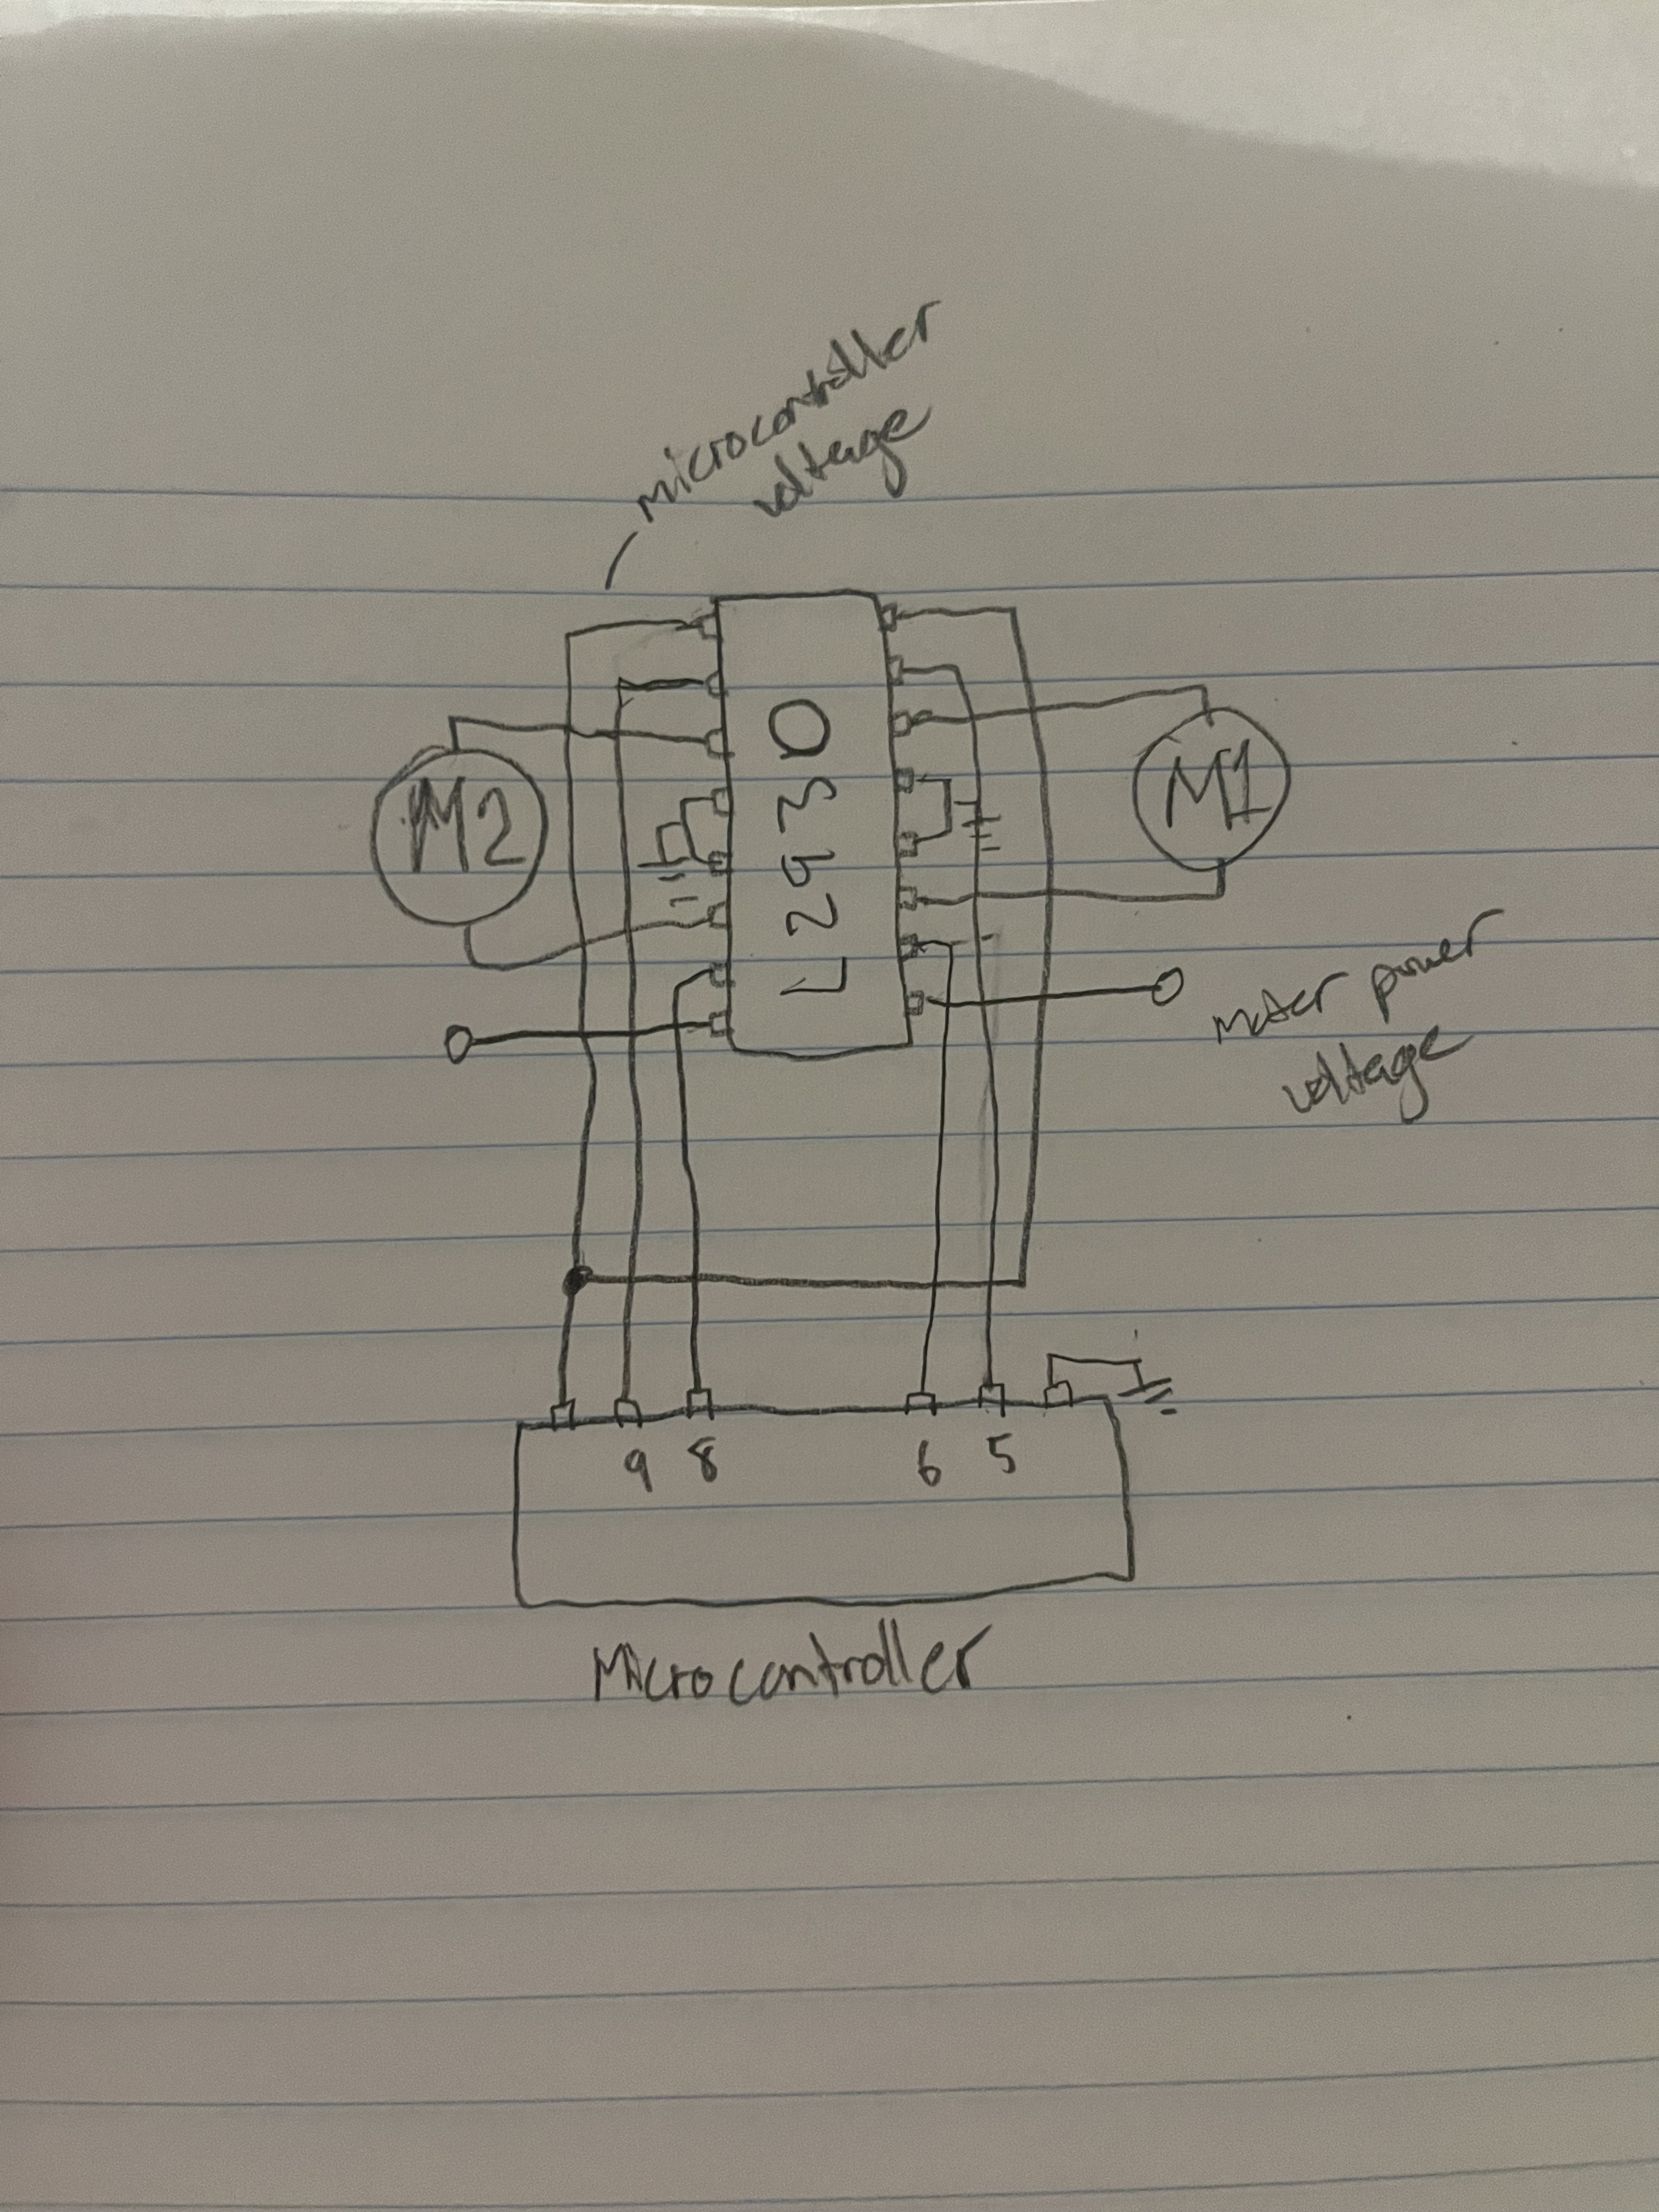 microcontroller
voltage
L293D
M2
M1
motor power
voltage
9 8 6 5
Microcontroller